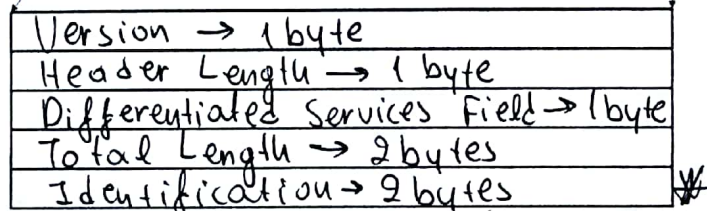 Version → 1 byte
Header Length → 1 byte
Differentiated Services Field → 1byte
Total Length → 2 bytes
Identification → 2 bytes